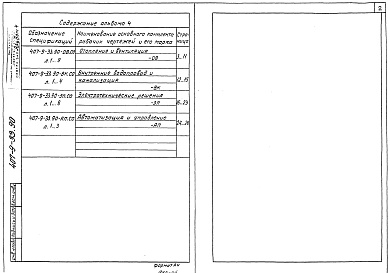 Содержание альбома 4
Обозначение спецификаций
Наименование основного комплекта рабочих чертежей и его марка
Стра-ница
407-9-33.90-ОВ.СО л.1...9
Отопление и вентиляция -ОВ
3...11
407-9-33.90-ВК.СО л.1...4
Внутренние водопровод и канализация -ВК
12...15
407-9-33.90-ЭП.СО л.1...8
Электротехнические решения -ЭП
16...23
407-9-33.90-АП.СО л.1...3
Автоматизация и управление -АП
24...26
407-9-33.90
Альбом 4
Формат А4
2